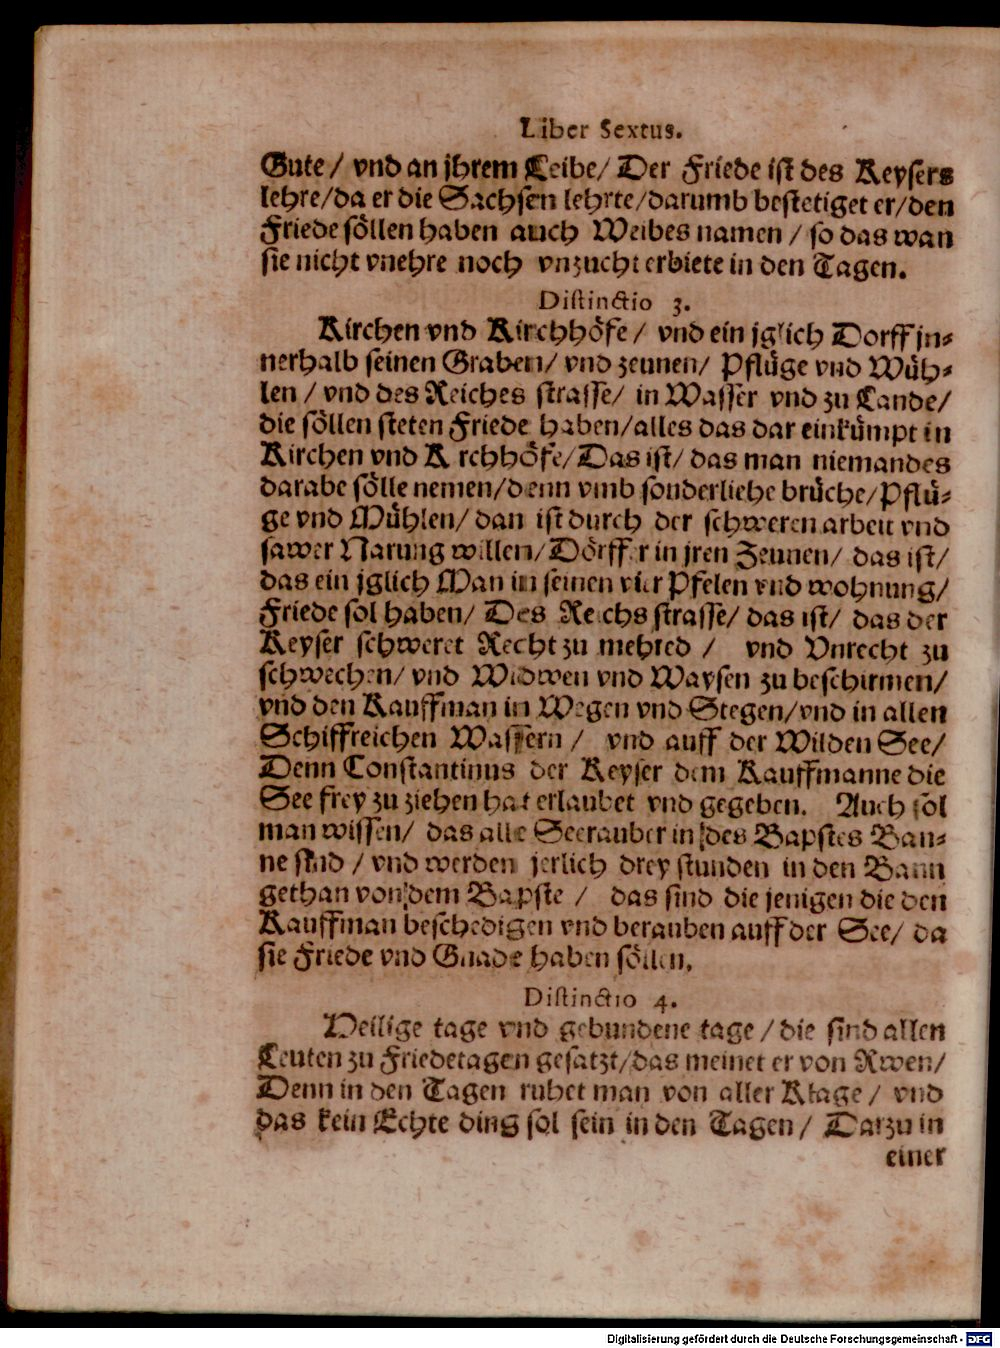 Liber Sextus.
Gute / vnd an jhrem Leibe / Der Friede ist des Keysers
lehre / da er die Sachsen lehrte / darumb bestetiget er / den
Friede söllen haben auch Weibes namen / so das wan
sie nicht vnehre noch vnzucht erbiete in den Tagen.
Distinctio 3.
Kirchen vnd Kirchhöfe / vnd ein jglich Dorff jn⸗
nerhalb seinen Graben / vnd zeunen / Pflüge vnd Müh⸗
len / vnd des Reiches strasse / in Wasser vnd zu Lande /
die söllen steten Friede haben / alles das dar einkümpt in
Kirchen vnd K rchhöfe / Das ist / das man niemandes
darabe sölle nemen / denn vmb sonderliche brüche / Pflü⸗
ge vnd Mühlen / dan ist durch der schweren arbeit vnd
sawer Narung willen / Dörff r in jren Zeunen / das ist /
das ein jglich Man in seinen vier Pfelen vnd wohnung /
Friede sol haben / Des Reichs strasse / das ist / das der
Keyser schweret Recht zu mehred / vnd Vnrecht zu
schwechen / vnd Widwen vnd Waysen zu beschirmen /
vnd den Kauffman in Wegen vnd Stegen / vnd in allen
Schiffreichen Wassern / vnd auff der Wilden See /
Denn Constantinus der Keyser dem Kauffmanne die
See frey zu ziehen hat erlaubet vnd gegeben. Auch sol
man wissen / das alle Seerauber in des Bapstes Ban⸗
ne sind / vnd werden jerlich drey stunden in den Bann
gethan von dem Bapste / das sind die jenigen die den
Kauffman beschedigen vnd berauben auff der See / da
sie Friede vnd Gnade haben söllen.
Distinctio 4.
Heilige tage vnd gebundene tage / die sind allen
Leuten zu Friedetagen gesatzt / das meinet er von Rwen /
Denn in den Tagen ruhet man von aller Klage / vnd
das kein Echte ding sol sein in den Tagen / Darzu in
einer
Digitalisierung gefördert durch die Deutsche Forschungsgemeinschaft - DFG